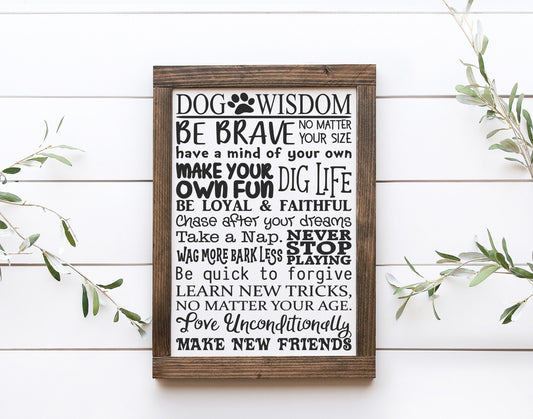 DOG WISDOM
BE BRAVE NO MATTER YOUR SIZE
have a mind of your own
MAKE YOUR OWN FUN DIG LIFE
BE LOYAL & FAITHFUL
Chase after your dreams
Take a Nap. NEVER STOP PLAYING
WAG MORE BARK LESS
Be quick to forgive
LEARN NEW TRICKS,
NO MATTER YOUR AGE.
Love Unconditionally
MAKE NEW FRIENDS